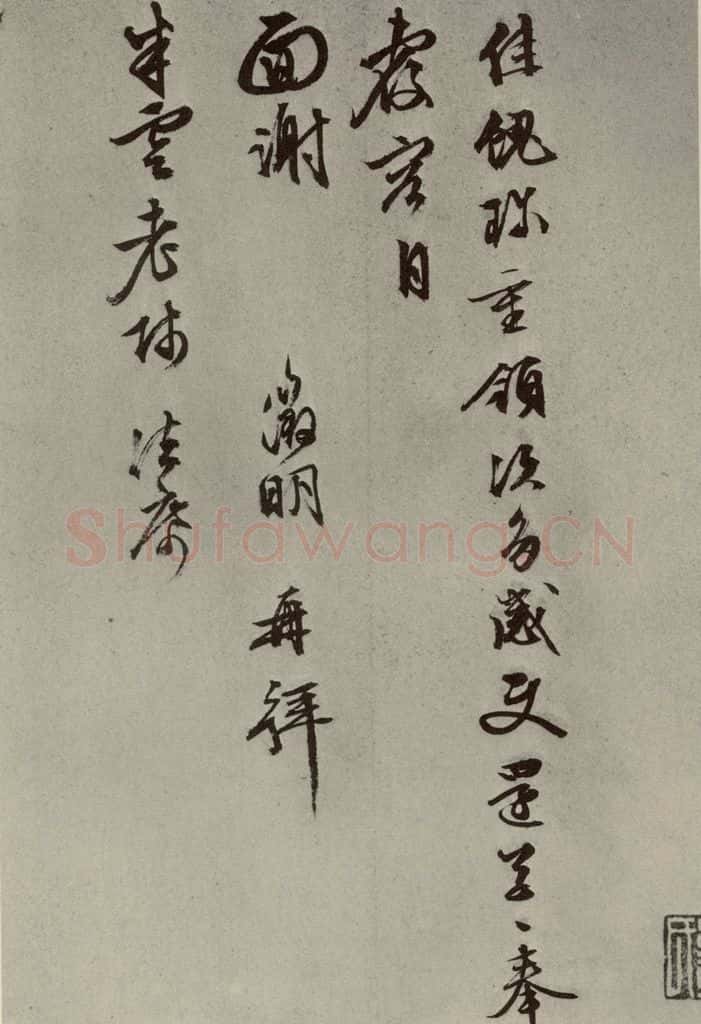 佳餽珍重領次多感使還草、奉
覆容日
面謝
徵明 再拜
半雲老師 法席
Shufawang.CN